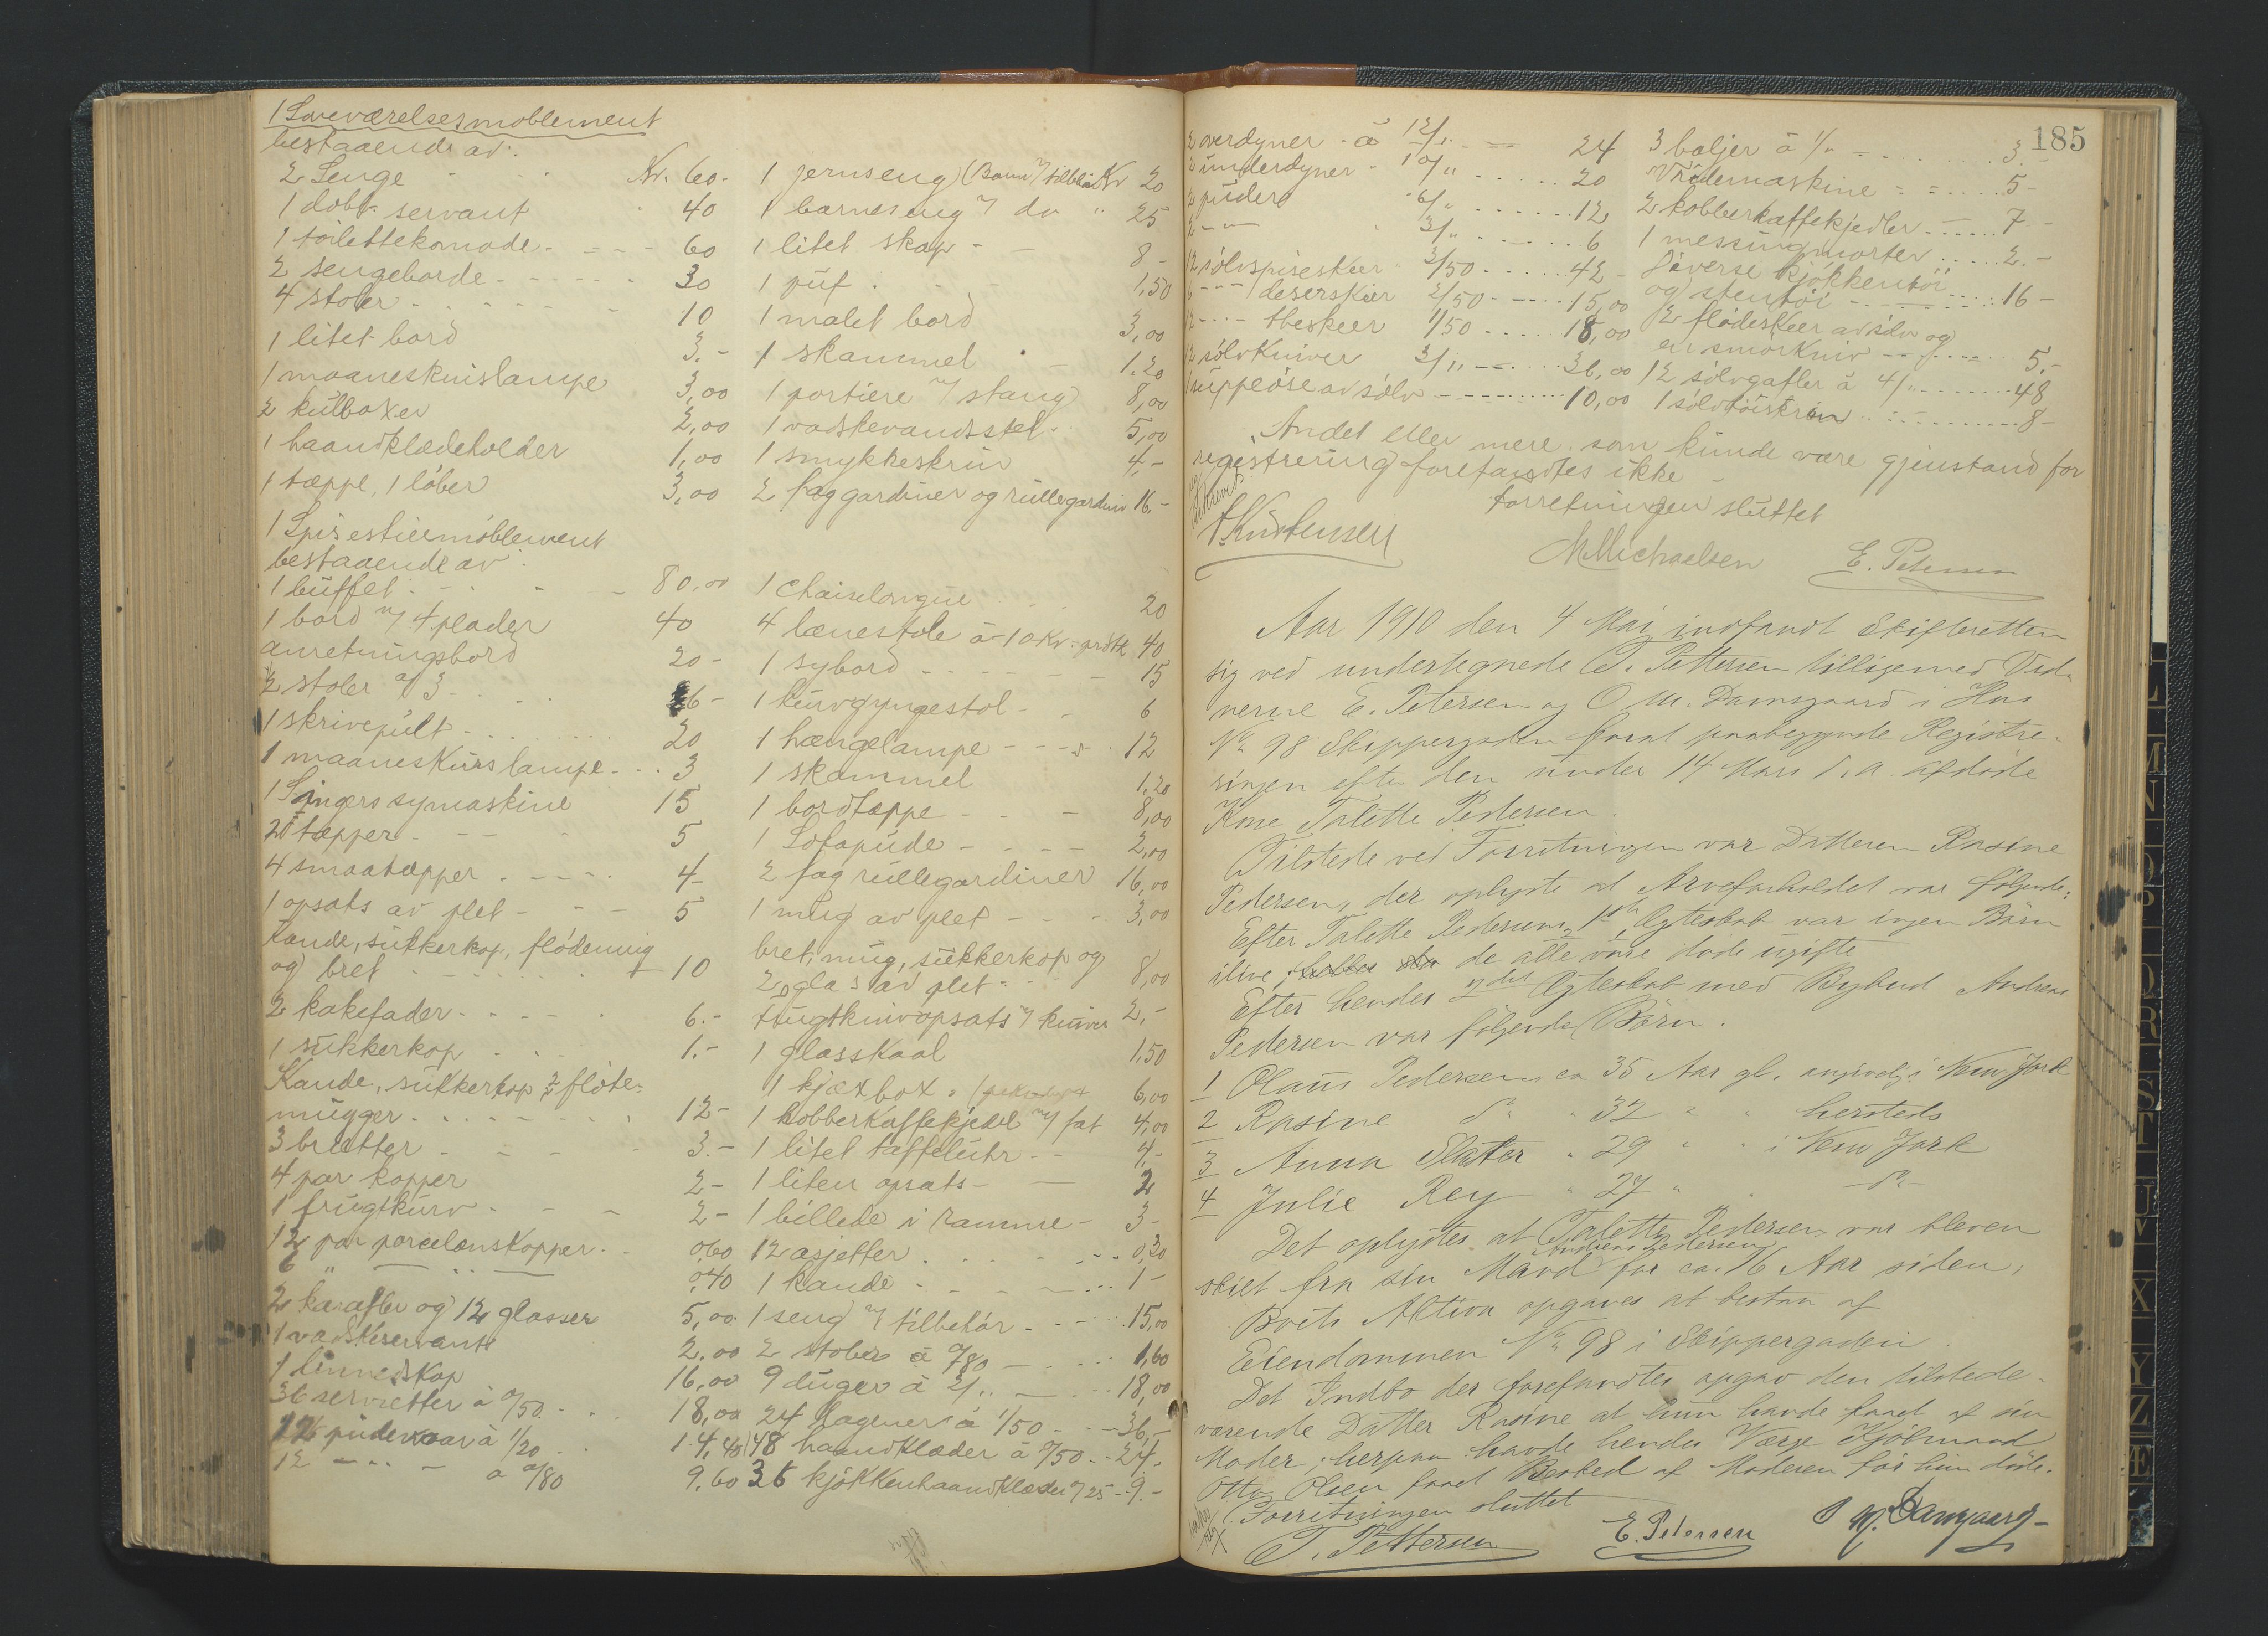 1 Soveværelsesmøblement
bestaaende av:
2 Senge Kr. 60.-
1 dobt. servant 40
1 toilettekomode 60
2 sengeborde 30
4 stoler 10
1 litet bord 3.-
1 maaneskinslampe 3,00
2 kulboxer 2,00
1 haandklædeholder 1,00
1 tæppe, 1 löber 3,00
1 Spisestuemöblement
bestaaende av:
1 buffet 80,00
1 bord m/ 4 plader 40
anretningsbord 20-
12 stoler a 3 36-
1 skrivepult 20
1 maaneskinslampe 3
1 Singers symaskine 15
2 tæpper 5
4 smaatæpper 4-
1 opsats av plet 5
Kande, sukkerkop, flödemug
og bret 10
2 kakefader 6.-
1 sukkerkop 1.-
Kande, sukkerkop 2 flöte-
mugger 12-
3 bretter 3.-
4 par kopper 2-
1 frugtkurv 2-
12 par porcelænskopper 0,60
6 " — " — 0,40
2 karafler og 12 glasser 5,00
1 vadskeservant 2,00
1 linnedskap 16,00
36 servietter á 0/50 18,00
12 pudevaar á 1/20 14,40
12 — " — á 0/80 9,60
1 jernseng (Barn m/ tilbeh. Kr 20
1 barneseng m/ do " 25
1 litet skap 8-
1 puf 1,50
1 malet bord 3,00
1 skammel 1.20
1 portiere m/ stang 8,00
1 vadskevandsstel 5,00
1 smykkeskrin 4,-
2 fag gardiner og rullegardin 16.-
1 chaiselongue 20
4 lænestole á 10 Kr. pr stk 40
1 sybord 15
1 kurvgyngestol 6
1 hængelampe 12
1 skammel 1,20
1 bordtæppe 8,00
1 Sofapude 2,00
2 fag rullegardiner 16,00
1 mug av plet 3,00
bret, mug, sukkerkop og
2 glas av plet 8,00
frugtknivopsats m/ kniver 2,-
1 glasskaal 1,50
1 kjæxbox 6,00
1 kobberkaffekjedel m/ fat 4,00
1 litet taffeluhr 4,-
1 liten opsats 2
1 billede i ramme 3-
12 asjetter 0,30
1 kande 1-
1 seng m/ tilbehör 15,00
2 stoler á 0/80 1,60
9 duger á 2/" 18,00
24 lagener á 1/50 36,-
48 haandklæder á 0/50 24.
36 kjökkenhaandklæder 0/25 9.-
185
2 overdyner á 12/" 24
2 underdyner 10/" 20
2 puder 6/" 12
2 — " — 3/" 6
12 sölvspiseskeer 3/50 42-
6 — " — deserskeer 2/50 15,00
12 — " — theskeer 1/50 18,00
12 sölvkniver 3/" 36,00
1 suppeöse av sölv 10,00
3 baljer á 1/" 3.-
Vridemaskine 5-
2 kobberkaffekjedler 7-
1 messingmorter 2.-
Diverse kjökkentöi
og stentöi 16-
2 flödeskeer av sölv og
en smörkniv 5.-
12 sölvgafler á 4/" 48
1 sölvtöiskrin 8-
Andet eller mere som kunde være gjenstand for
registrering forefandtes ikke
Forretningen sluttet
M Michaelsen E. Petersen
Aar 1910 den 4 Mai indfandt Skifteretten
sig ved undertegnede T. Pettersen tilligemed Vid-
nerne E. Petersen og O. M. Damsgaard i Hus
No 98 Skippergaden forat paabegynde Registre-
ringen efter den under 14 Mars d.a. afdøde
Kone Talette Pedersen.
Tilstede ved Forretningen var Datteren Rasine
Pedersen, der oplyste at Arveforholdet var følgende:
Efter Talette Pedersens 1ste Ægteskab var ingen Børn
ilive, de alle vare døde ugifte
Efter hendes 2det Ægteskab med Bybud Andreas
Pedersen var følgende Børn.
1 Olaus Pedersen ca 35 Aar gl. angivelig i New York
2 Rasine do " 32 " " hersteds
3 Anna Slater " 29 " " i New York
4 Julie Rey " 27 " — do —
Det oplystes at Talette Pedersen var bleven
skilt fra sin Mand Andreas Pedersen for ca. 16 Aar siden.
Boets Aktiva opgaves at bestaa af
Eiendommen No 98 i Skippergaden
Det Indbo der forefandtes opgav den tilstede-
værende Datter Rasine at hun havde faaet af sin
Moder; herpaa havde hendes Værge Kjøbmand
Otto Olsen faaet Besked af Moderen før hun døde.
Forretningen sluttet
T. Pettersen E. Petersen O M. Damsgaard